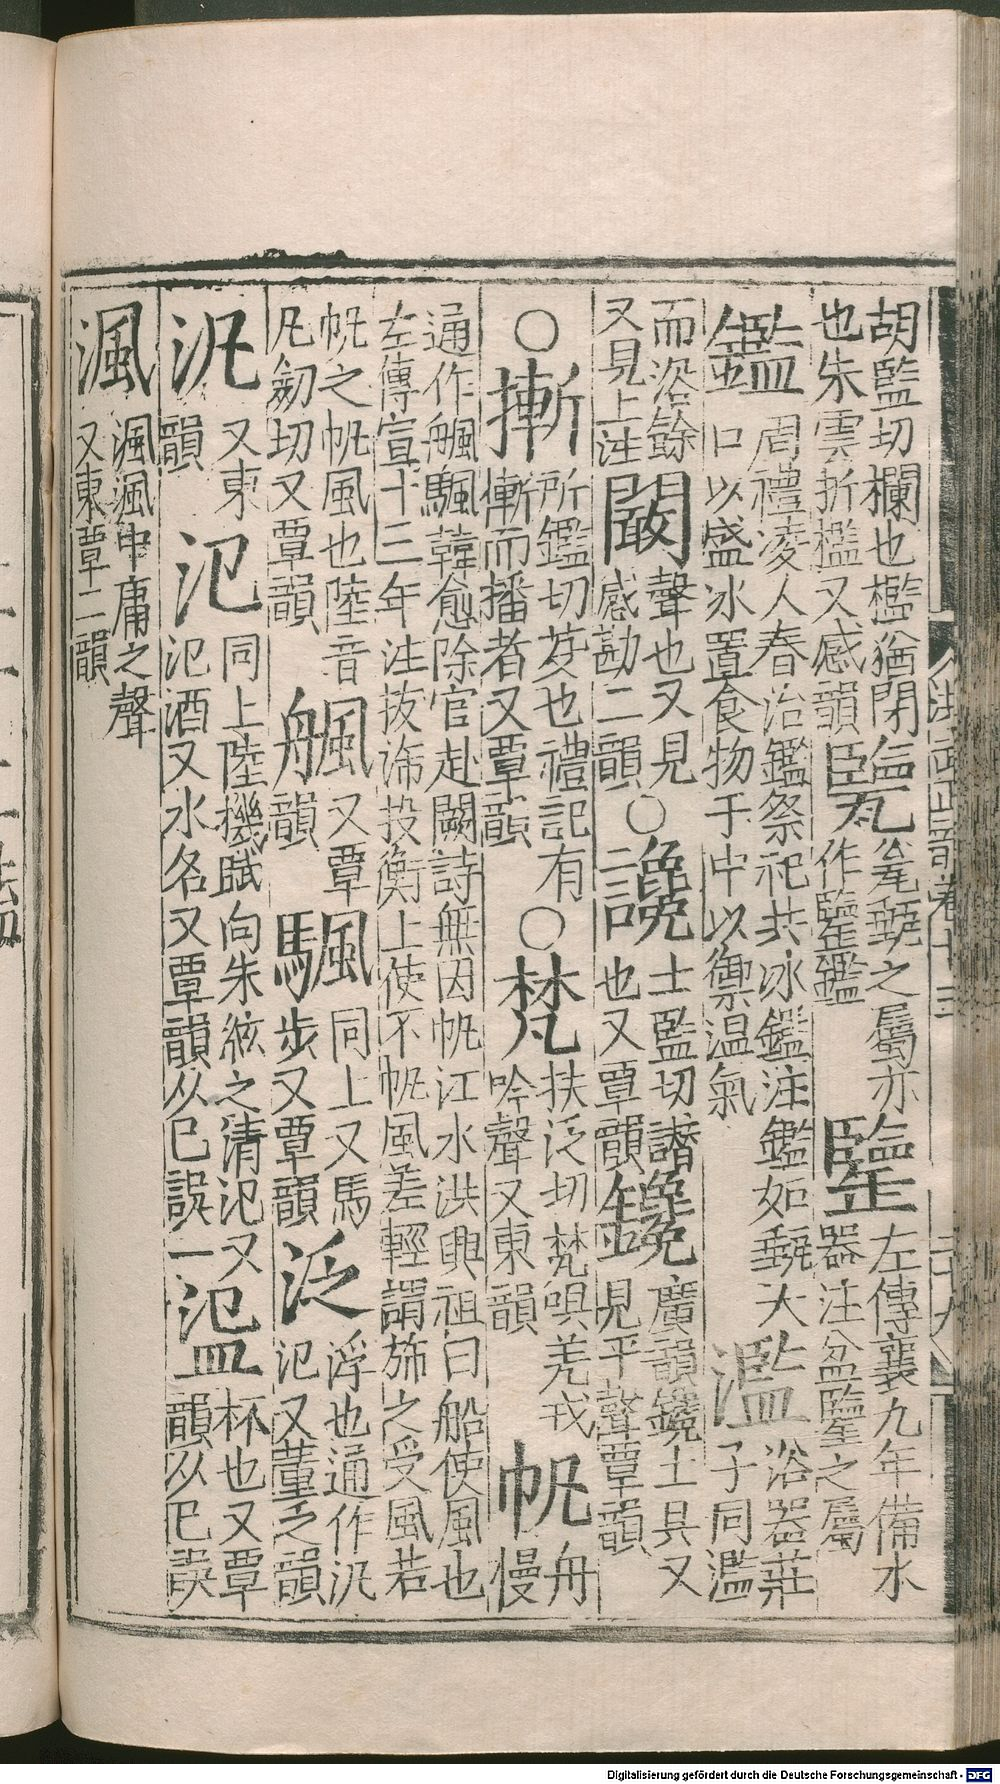 胡監切欄也檻猶閉
也朱雲折檻又感韻
㽉
瓮甀之屬亦
作鑒鑑
䀋
左傳襄九年備水
器注盆鑒之屬
鑑
周禮凌人春治鑑祭祀共冰鑑注鑑如甀大
口以盛冰置食物于中以禦温氣
濫
浴器莊
子同濫
而浴餘
又見上注
闞
聲也又見
感勘二韻
○
讒
士監切譖
也又覃韻
鑱
廣韻鑱土具又
見平聲覃韻
○
摲
所鑑切芟也禮記有
摲而播者又覃韻
○
梵
扶泛切梵唄羌戎
吟聲又東韻
帆
舟
慢
通作颿䭵韓愈除官赴闕詩無因帆江水洪興祖曰船使風也
左傳宣十三年注拔斾投衡上使不帆風差輕謂斾之受風若
帆之帆風也陸音
凡劒切又覃韻
颿
又覃
韻
䭵
同上又馬
步又覃韻
泛
浮也通作汎
氾又董乏韻
汎
又東
韻
氾
同上陸機賦向朱絃之清氾又
氾酒又水名又覃韻从巳誤一
𥁒
杯也又覃
韻从巳誤
渢
渢渢中庸之聲
又東覃二韻
洪武正韻卷十三
二十九
Digitalisierung gefördert durch die Deutsche Forschungsgemeinschaft - DFG